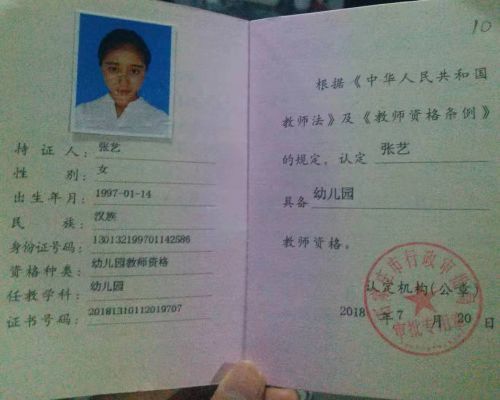 持证人：张艺
性别：女
出生年月：1997-01-14
民族：汉族
身份证号码：130132199701142586
资格种类：幼儿园教师资格
任教学科：幼儿园
证书号码：20181310112019707
10
根据《中华人民共和国
教师法》及《教师资格条例》
的规定，认定 张艺
具备 幼儿园
教师资格。
市行政审批
认定机构(公章)
2018 年 7 月 20 日
审批专用章